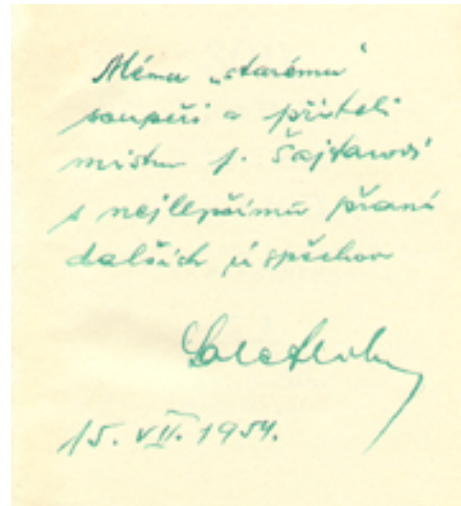 Mému „starému“
soupeři a příteli
mistru J. Šajtarovi
s nejlepšímu přaní
dalších úspěchov
15. VII. 1954.